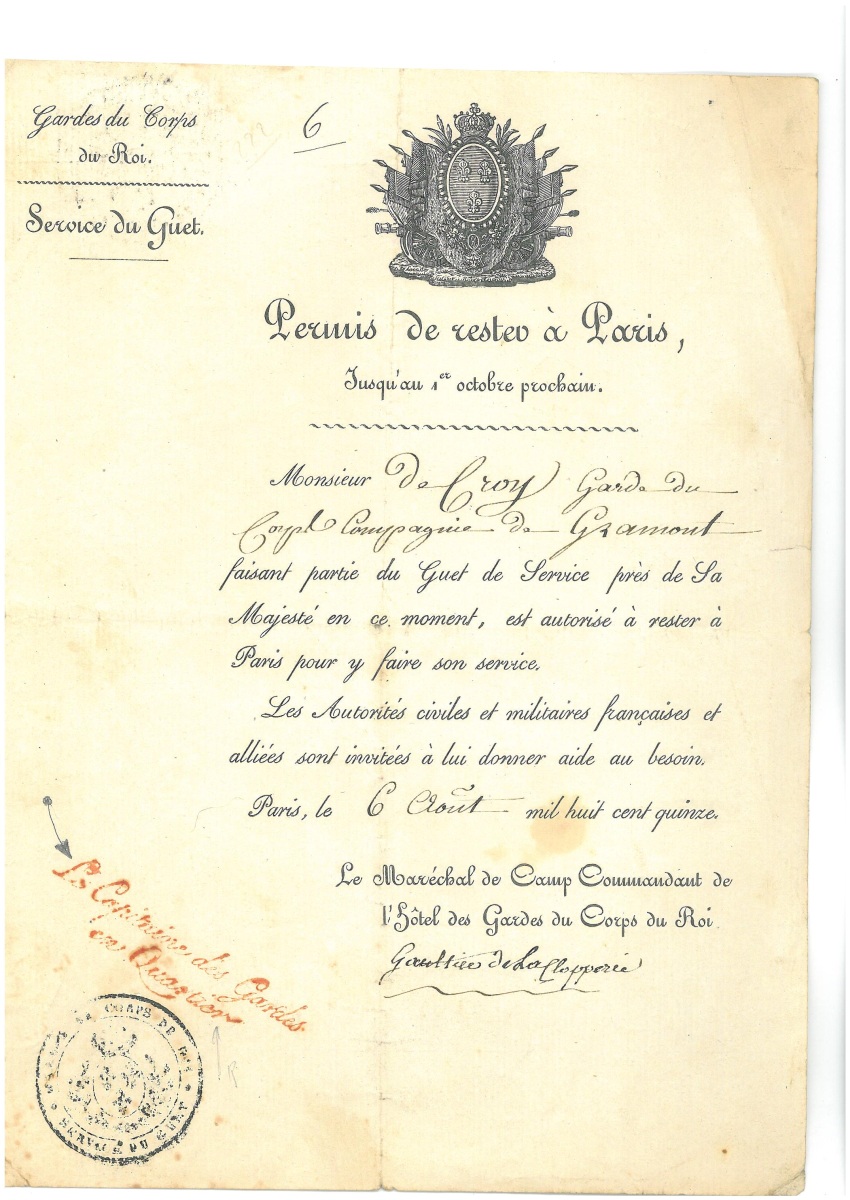 Gardes du Corps
du Roi.
Service du Guet.
6
Permis de rester à Paris,
Jusqu'au 1er octobre prochain.
Monsieur De Croy Garde du
Corps Compagnie de Gramont
faisant partie du Guet de Service près de Sa
Majesté en ce moment, est autorisé à rester à
Paris pour y faire son service.
Les Autorités civiles et militaires françaises et
alliées sont invitées à lui donner aide au besoin.
Paris, le 6 Août mil huit cent quinze.
Le Maréchal de Camp Commandant de
l'Hôtel des Gardes du Corps du Roi
Gaultier de LaClopperie
Le Capitaine des Gardes
en Quartier
GARDES DU CORPS DU ROI
SERVICE DU GUET